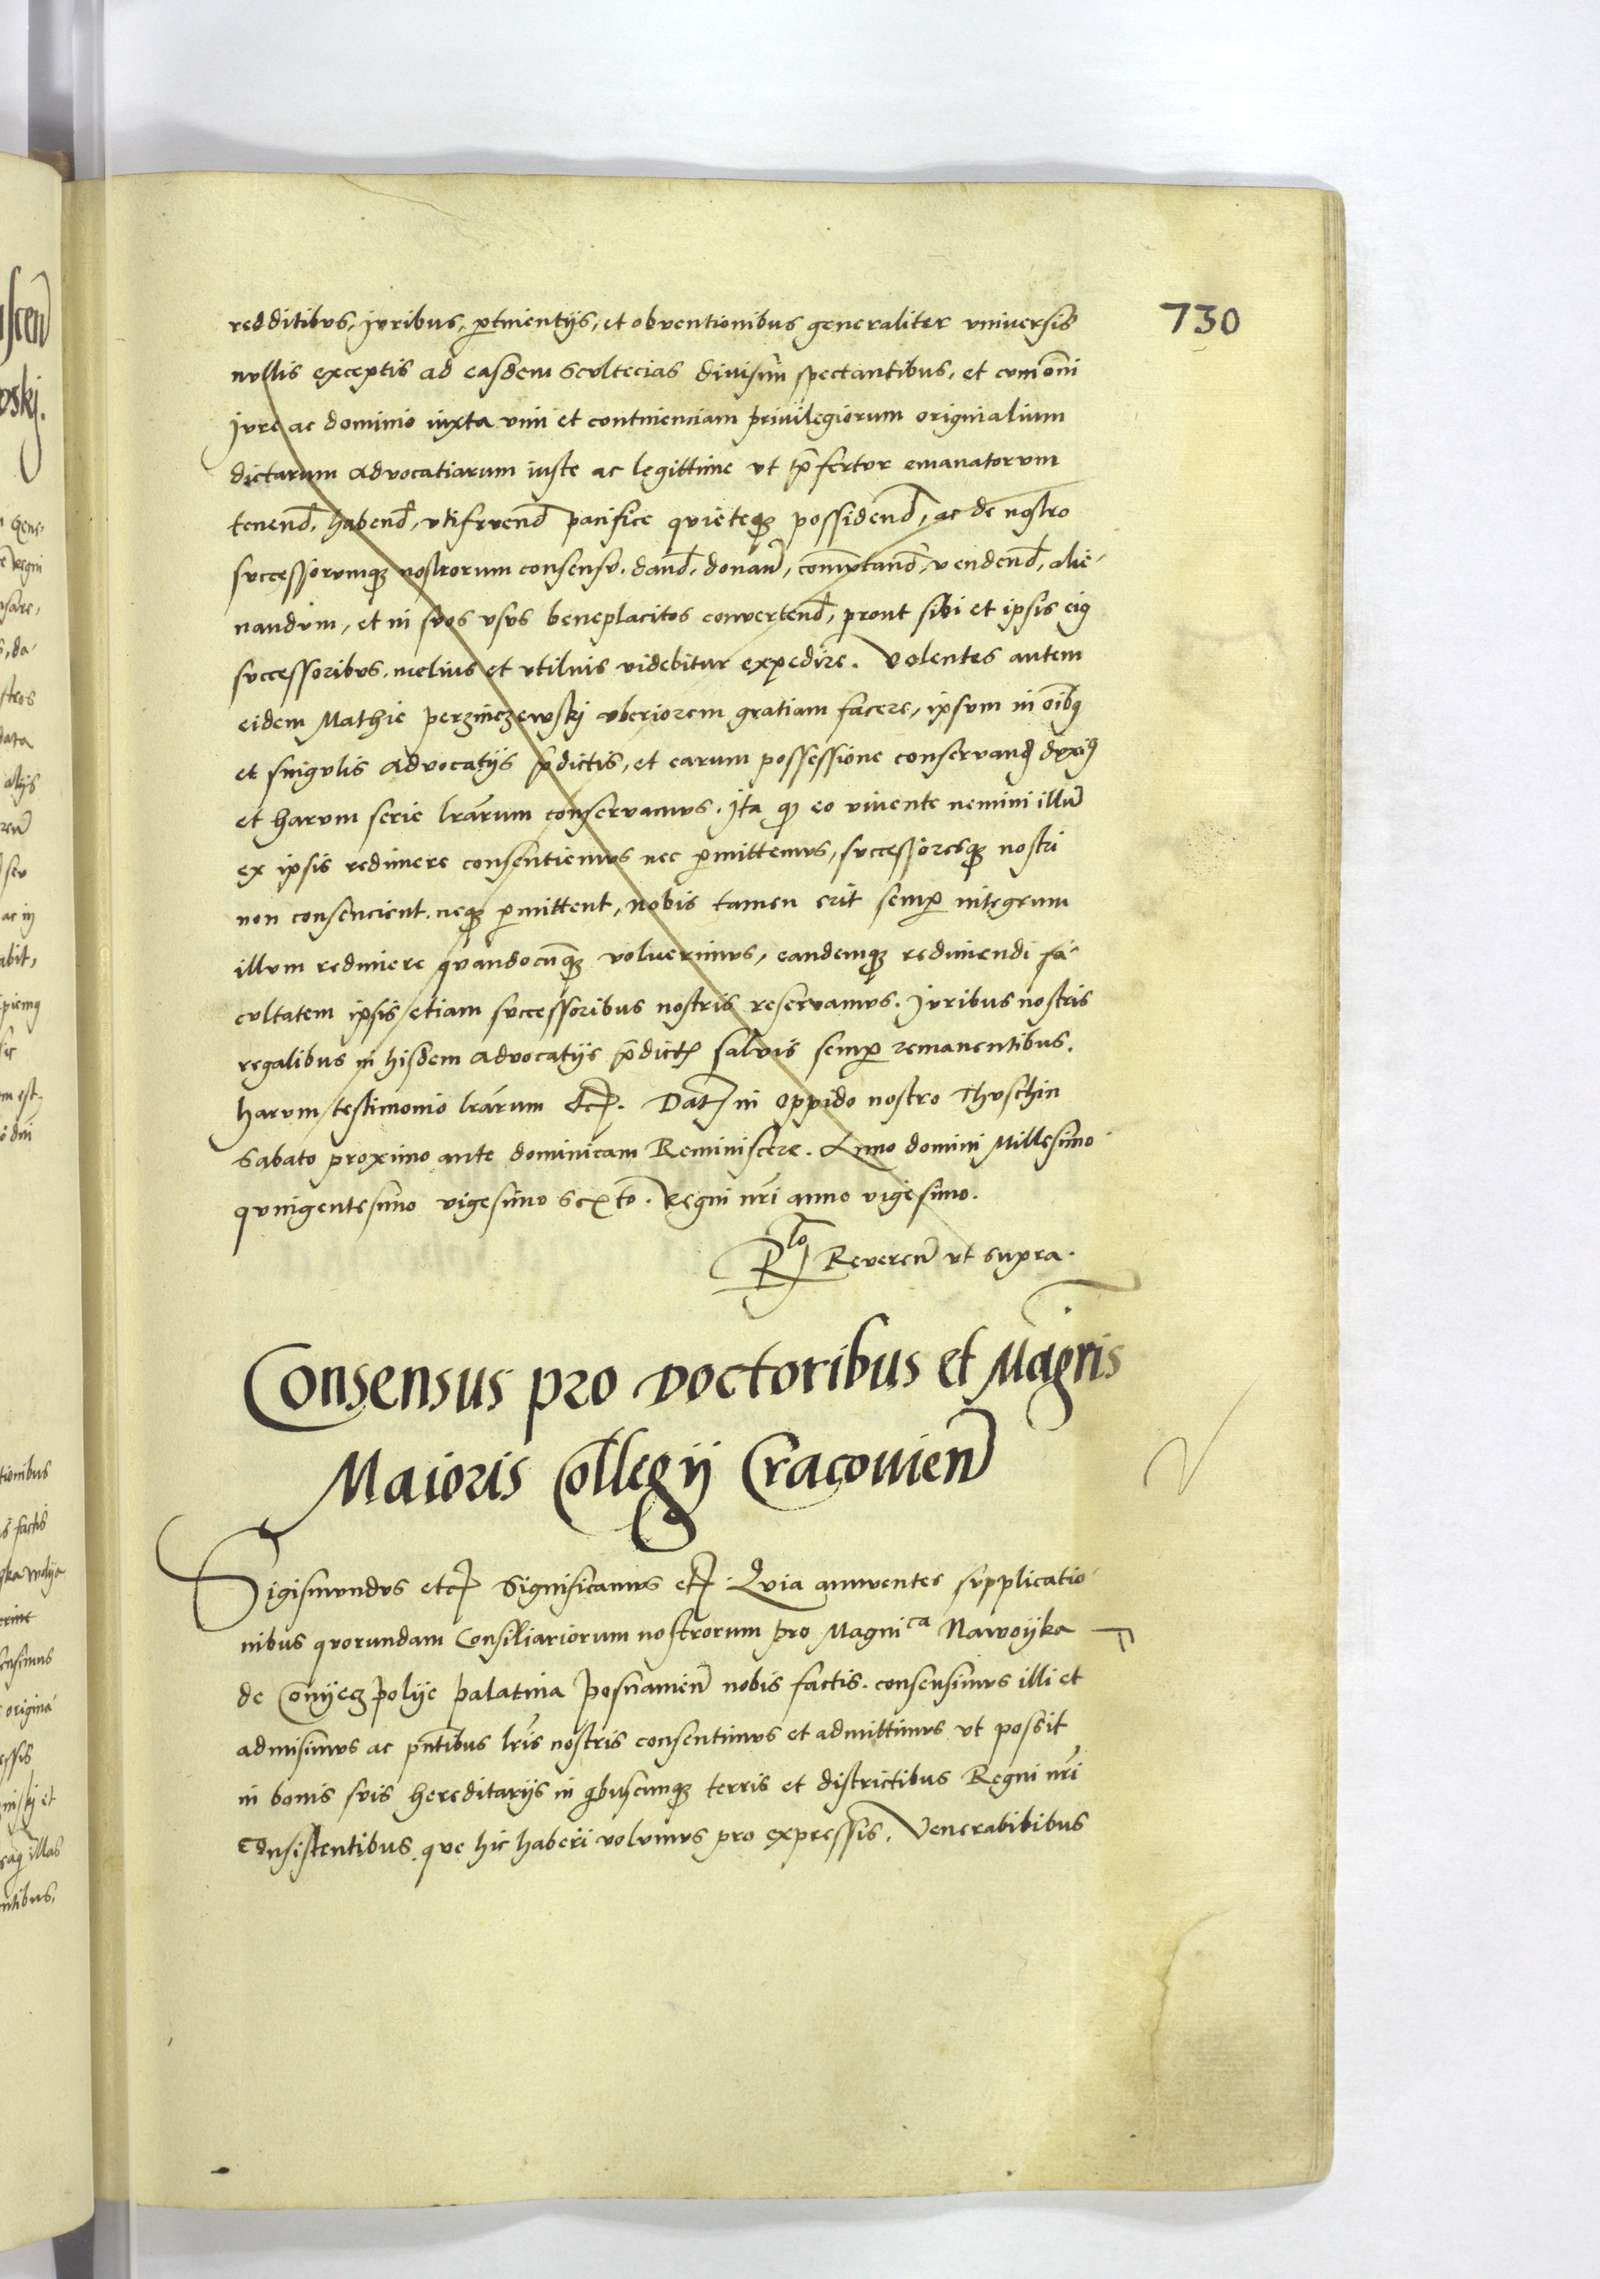 730
redditibus, iuribus, ꝑtinentijs, et obventionibus generaliter vniversis
nullis exceptis ad easdem scultecias divisim spectantibus, et cum om̄i
jure ac dominio iuxta vim et continenciam privilegiorum originalium
dictarum advocatiarum iuste ac legittime vt p̄fertur emanatorum
tenend̄, habend̄, vtifruend̄ pacifice quieteqꝫ possidend̄, ac de nostro
successorumqꝫ nostrorum consensu. dand̄, donan̄, com̄utand̄, vendend̄, alie-
nandum, et in suos vsus beneplacitos convertend̄, prout sibi et ipsis eiꝰ
successoribus. melius et vtilius videbitur expedire. Volentes autem
eidem Mathie perzinczewskj vberiorem gratiam facere, ipsum in om̄ibꝰ
et singulis advocatijs p̄dictis, et earum possessione conservanꝺ duxiꝰ
et harum serie lr̄arum conservamus. Ita qꝫ eo vivente nemini illum̄
ex ipsis redimere consentiemus nec ꝑmittemus, successoresqꝫ nostri
non consencient. neqꝫ ꝑmittent, nobis tamen erit semꝑ integrum
illum redimere quandocunqꝫ voluerimus, eandemqꝫ redimendi fa-
cultatem ipsis etiam successoribus nostris reservamus. Juribus nostris
regalibus in hisdem advocatijs p̄dictꝭ salvis semꝑ remanentibus.
harum testimonio lr̄arum etcꝭ. Datꝭ in oppido nostro Thuschin
Sabato proximo ante dominicam Reminiscere. Anno domini Millesimo
quingentesimo vigesimo sexto. Regni nr̄i anno vigesimo.
Rlo Reveren̄ vt supra.
Consensus pro Doctoribus et Magr̄is
Maioris Collegij Cracovien̄
Sigismundus etcꝭ Significamus etcꝭ. Quia annuentes supplicatio-
nibus quorundam Consiliariorum nostrorum pro Magnica Nawoyka
de Conyeczpolye palatina posnanien̄ nobis factis. consensimus illi et
admisimus ac pn̄tibus lr̄is nostris consentimus et admittimus vt possit
in bonis suis hereditarijs in qbuscunqꝫ terris et districtibus Regni nr̄i
Consistentibus. que hic haberi volumus pro expressis. Venerabibibus